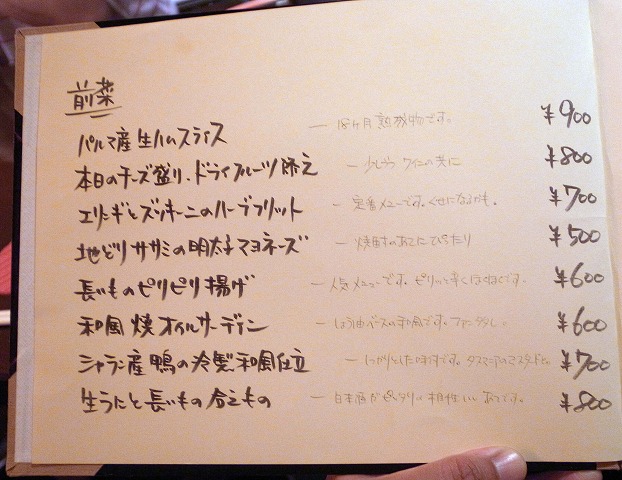 前菜
パルマ産生ハムスライス — 18ヶ月熟成物です。 ¥900
本日のチーズ盛り、ドライフルーツ添え — 少しずつ ワインの共に ¥800
エリンギとズッキーニのハーブフリット — 定番メニューです。くせになるかも。 ¥700
地どりササミの明太子マヨネーズ — 焼酎のあてにぴったり ¥500
長いものピリピリ揚げ — 人気メニューです。ピリッと辛くほくほくです。 ¥600
和風焼オイルサーディン — しょう油ベースの和風です。 ¥600
シャラン産鴨の冷製和風仕立 — しっかりとした味付です。タスマニアのマスタードと。 ¥700
生うにと長いもの合えもの — 日本酒がピッタリ。相性いいあてです。 ¥800